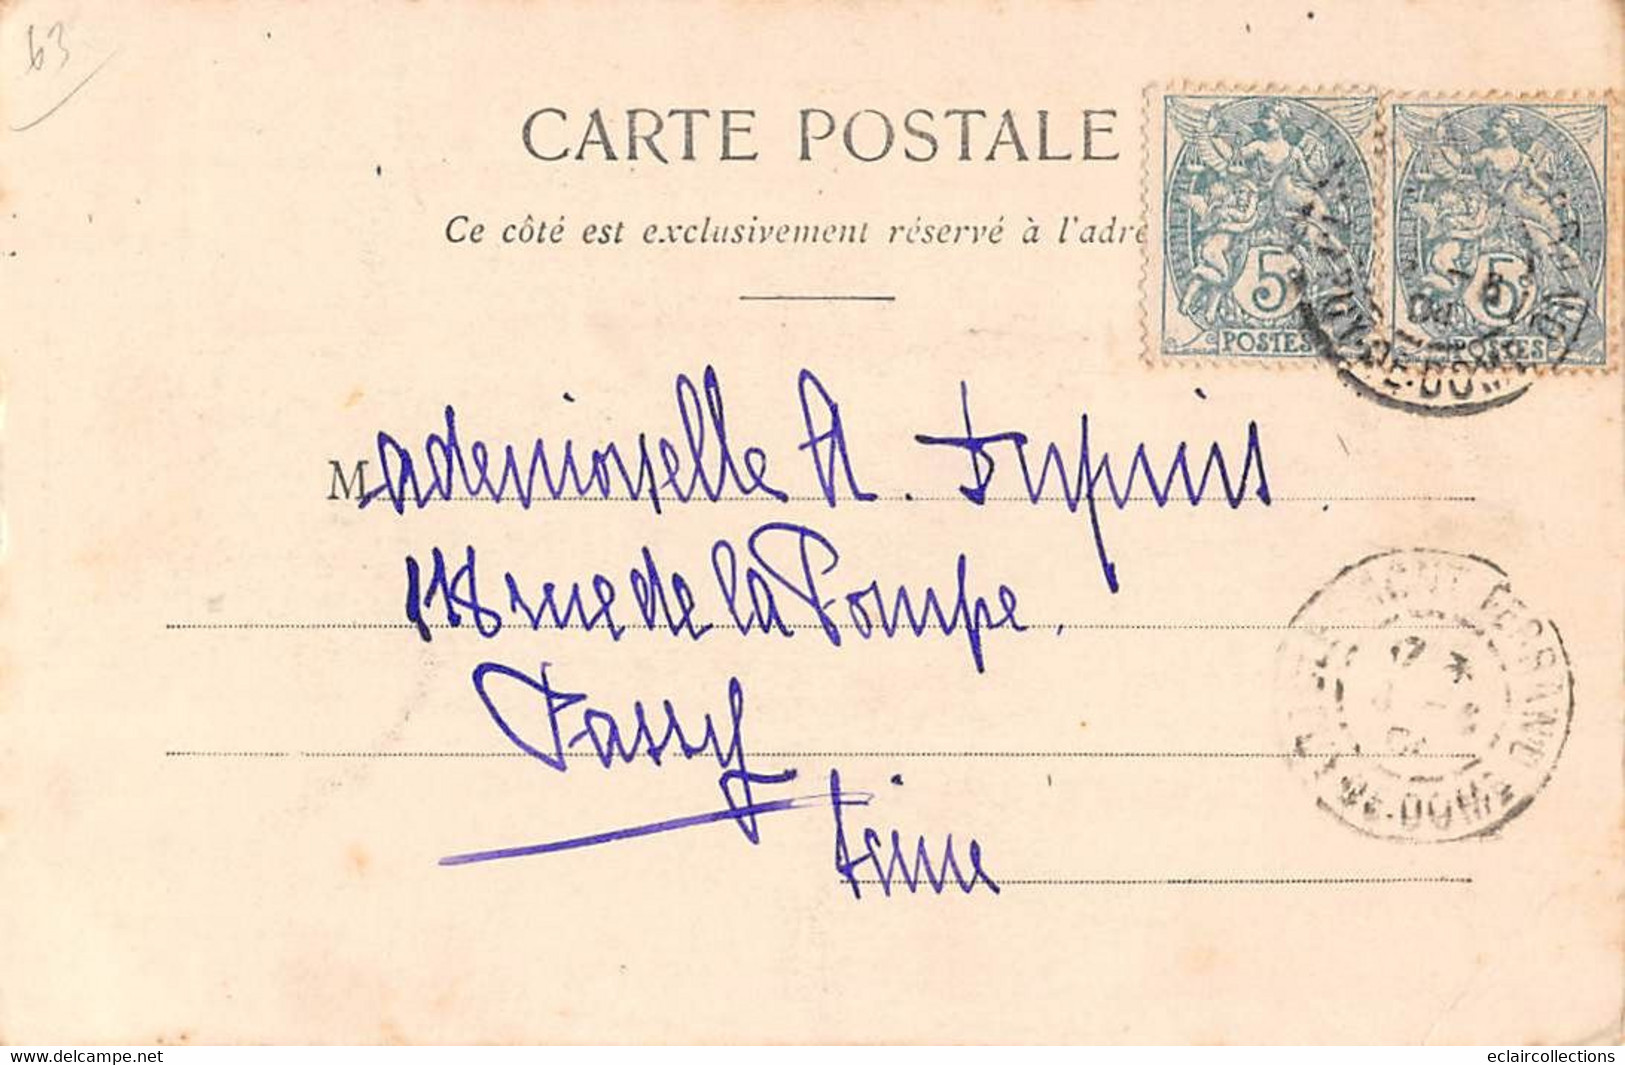 63
CARTE POSTALE
Ce côté est exclusivement réservé à l'adre
5
POSTES
5
POSTES
Mademoiselle A. Dupuis
118 rue de la Pompe.
Passy
Seine
www.delcampe.net
eclaircollections